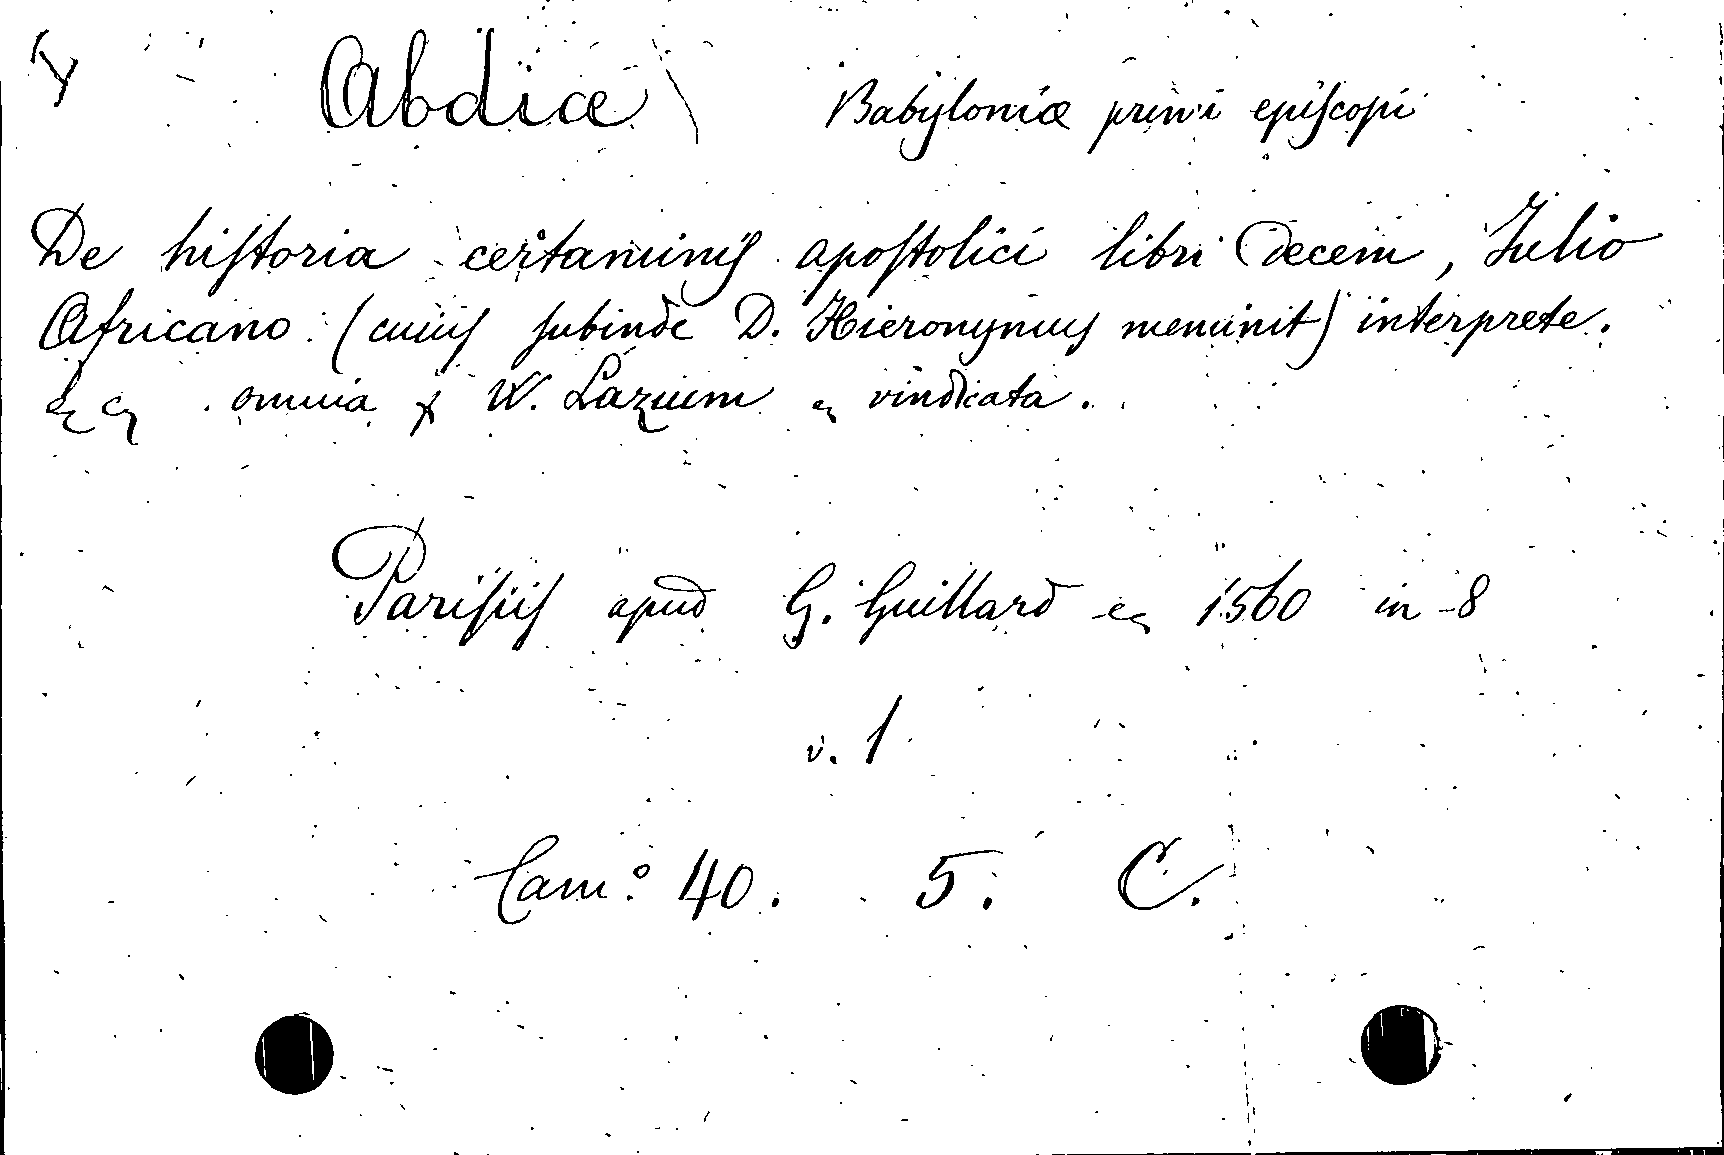 Abdiæ Babyloniæ primi episcopi
De historia certaminis apostolici libri decem, Julio
Africano (cuius subinde D. Hieronymus meminit) interprete.
omnia p W. Lazium vindicata.
Parisiis apud G. Guillard 1560 in-8
v. 1
Cam: 40. 5. C.